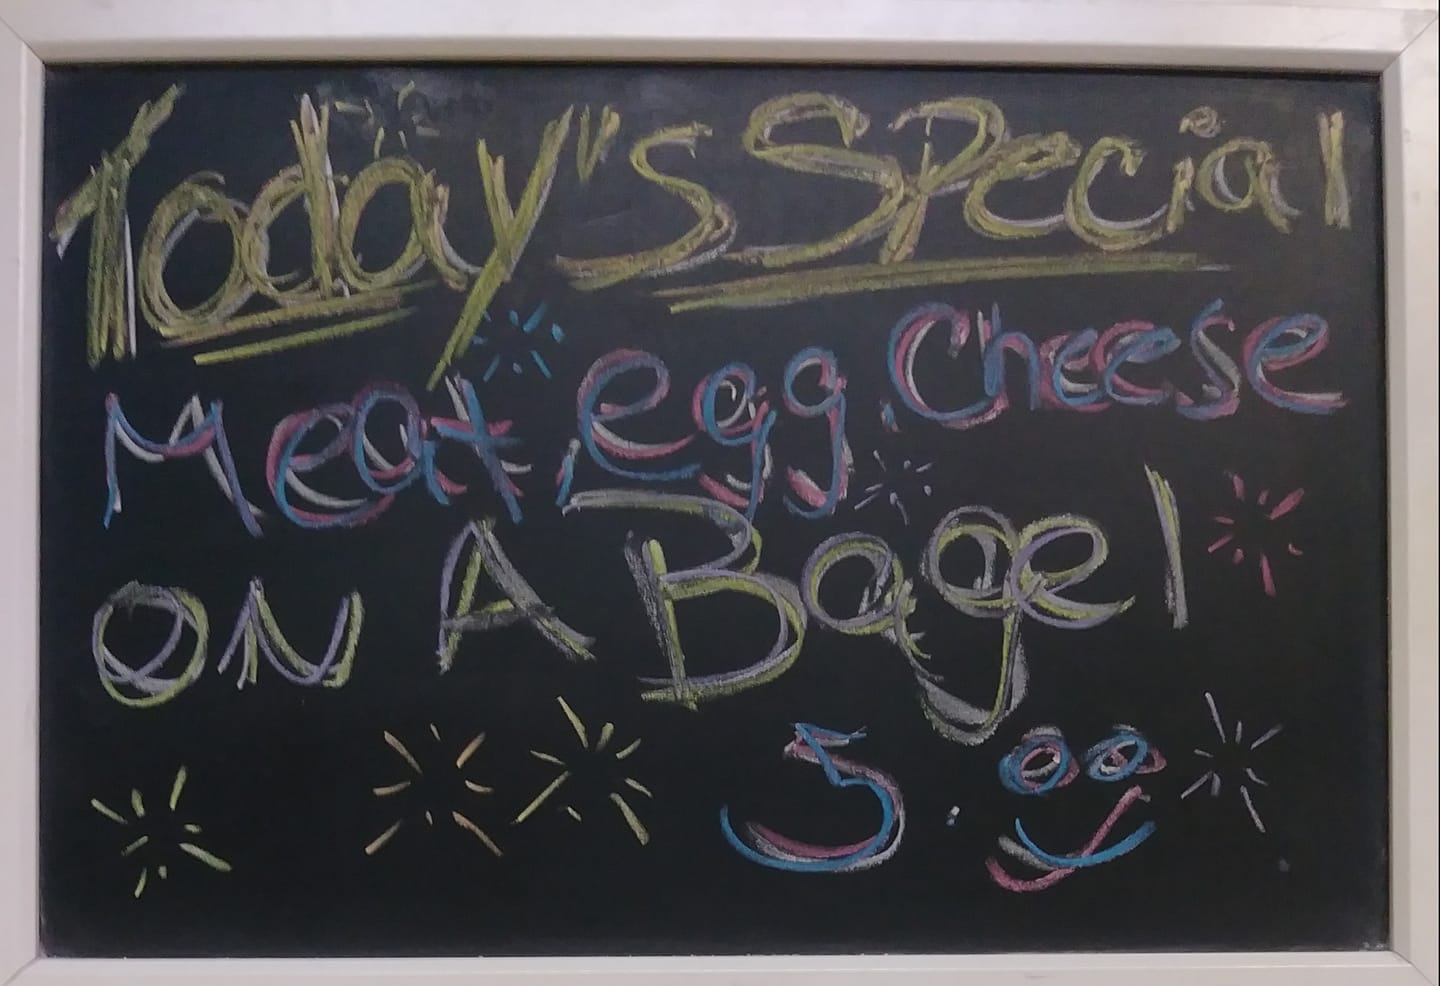 Today's Special
Meat, egg, Cheese
ON A Bagel
5.00